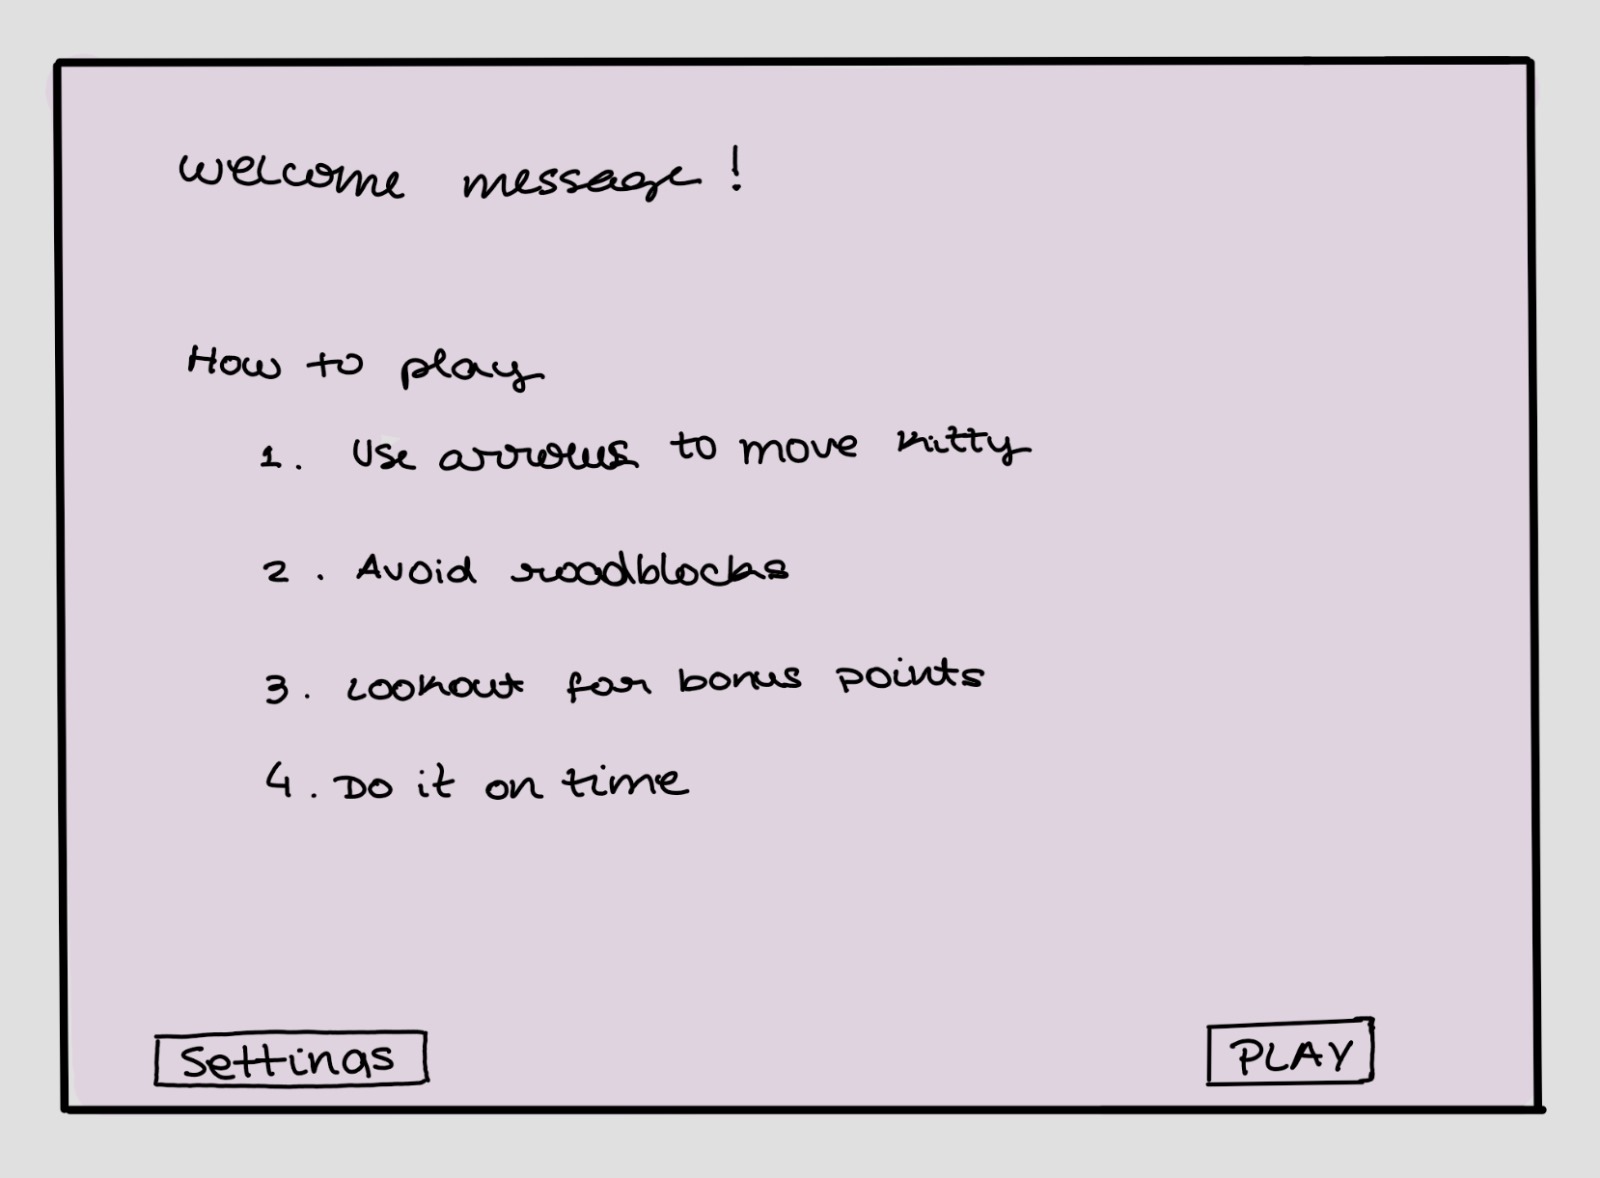 Welcome message!
How to play
1. Use arrows to move kitty
2. Avoid roadblocks
3. Lookout for bonus points
4. Do it on time
Settings
PLAY